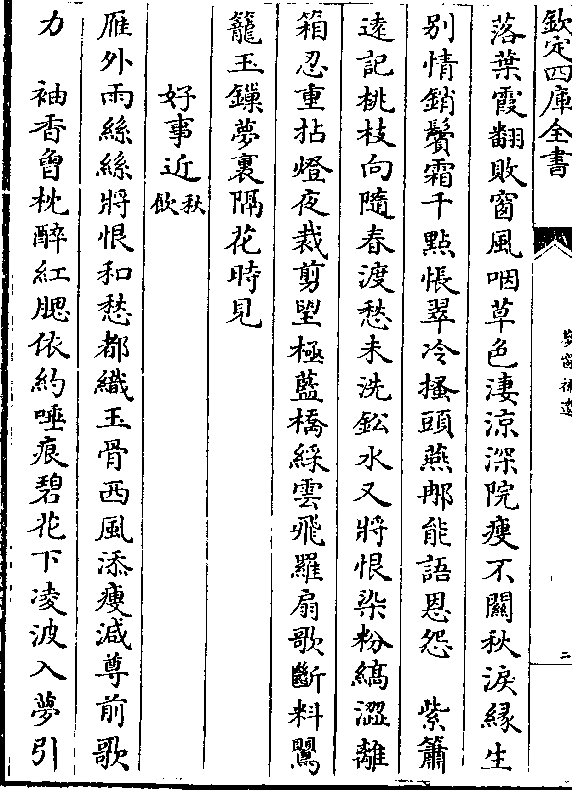 欽定四庫全書
夢窗補遺
二
落葉霞翻敗窗風咽草色淒涼深院瘦不關秋淚緣生
别情銷鬢霜千點悵翠冷搔頭燕那能語恩怨　紫簫
遠記桃枝向隨春渡愁未洗鈆水又將恨染粉縞澀離
箱忍重拈燈夜裁剪望極藍橋綵雲飛羅扇歌斷料鸎
籠玉鏁夢裏隔花時見
好事近秋飲
雁外雨絲絲將恨和愁都織玉骨西風添瘦減尊前歌
力　袖香曾枕醉紅腮依約唾痕碧花下凌波入夢引